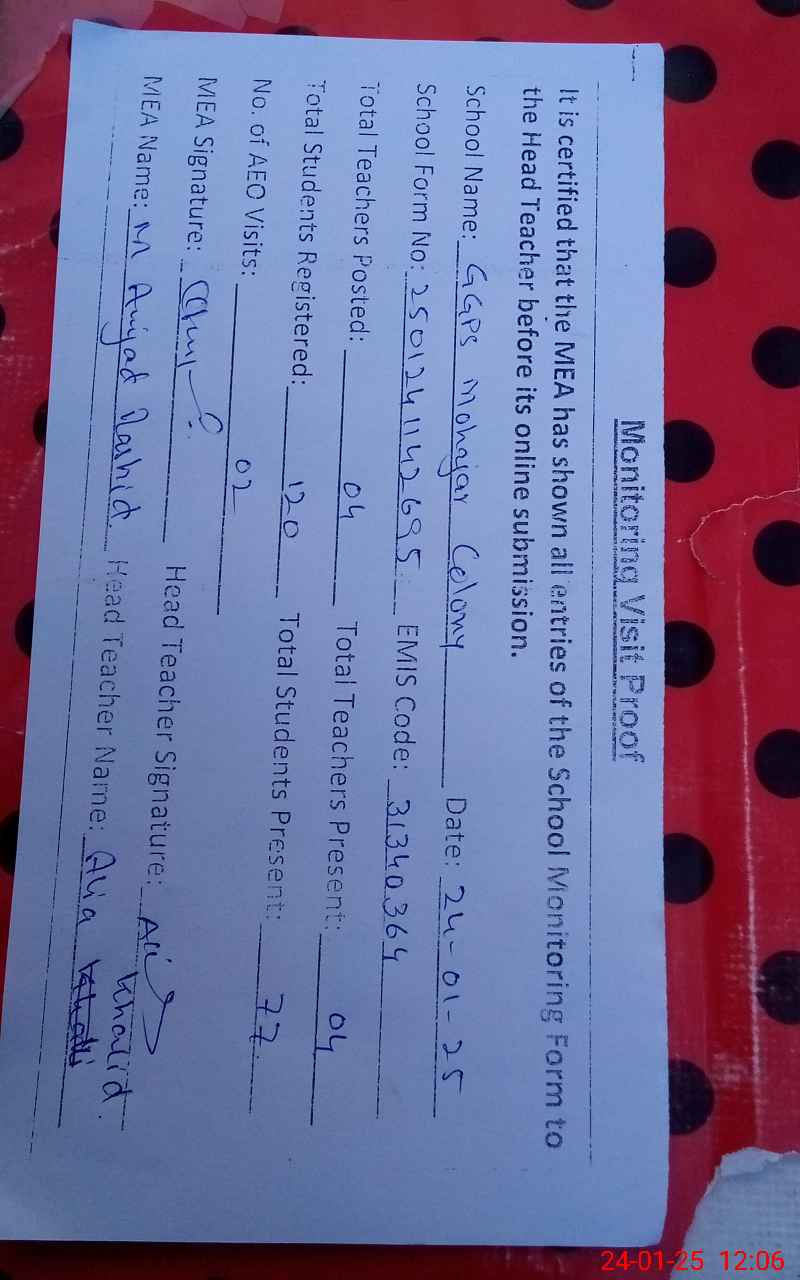 Monitoring Visit Proof
It is certified that the MEA has shown all entries of the School Monitoring Form to
the Head Teacher before its online submission.
School Name: GGPS Mohajar Colony Date: 24-01-25
School Form No: 2501241142695 EMIS Code: 31340364
Total Teachers Posted: 04 Total Teachers Present: 04
Total Students Registered: 120 Total Students Present: 77
No. of AEO Visits: 02
MEA Signature: Head Teacher Signature:
MEA Name: M Amjad Rashid Head Teacher Name: Alia Khalid
24-01-25 12:06